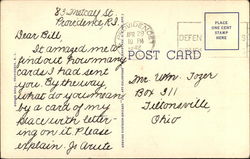 83 Metcalf St
Providence, R.I.
Dear Bill
It amazed me to
find out how many
cards I had sent
you. By the way,
what do you mean
by a card of my
place with letter-
ing on it. Please
explain.
PROVIDENCE
APR 29
10 PM
DEFEN
PLACE
ONE CENT
STAMP
HERE
POST CARD
Mr. Wm. Tozer
Box 311
Tiltonsville
Ohio